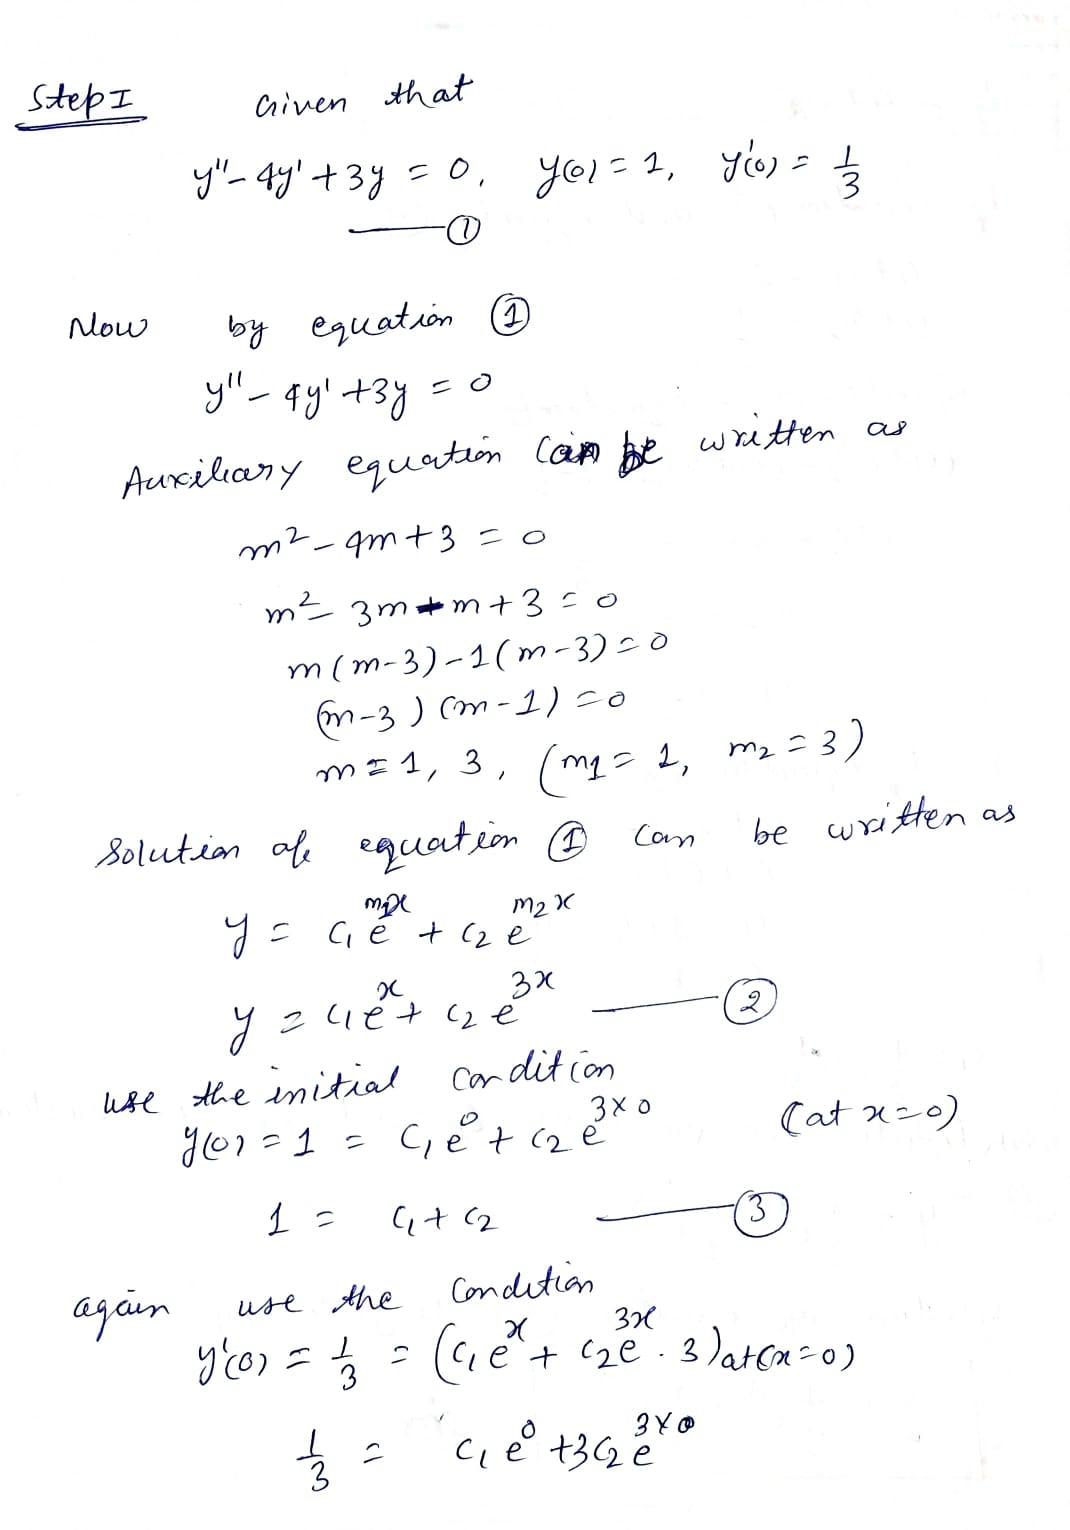 Step I Given that
y'' - 4y' + 3y = 0, y(0) = 1, y'(0) = 1/3
—①
Now by equation ①
y'' - 4y' + 3y = 0
Auxiliary equation can be written as
m² - 4m + 3 = 0
m² - 3m - m + 3 = 0
m(m-3) - 1(m-3) = 0
(m-3)(m-1) = 0
m = 1, 3, (m₁ = 1, m₂ = 3)
Solution of equation ① can be written as
y = c₁e^{m₁x} + c₂e^{m₂x}
y = c₁e^{x} + c₂e^{3x} —②
use the initial condition
y(0) = 1 = c₁e^{0} + c₂e^{3×0} (at x=0)
1 = c₁ + c₂ —③
again use the condition
y'(0) = 1/3 = (c₁e^{x} + c₂e^{3x}·3)at(x=0)
1/3 = c₁e^{0} + 3c₂e^{3×0}